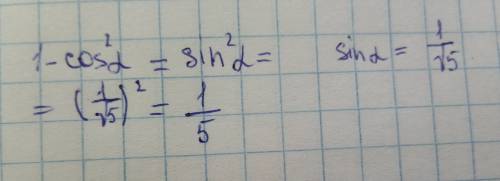 1 - cos²α = sin²α = sin α = 1/√5
= (1/√5)² = 1/5